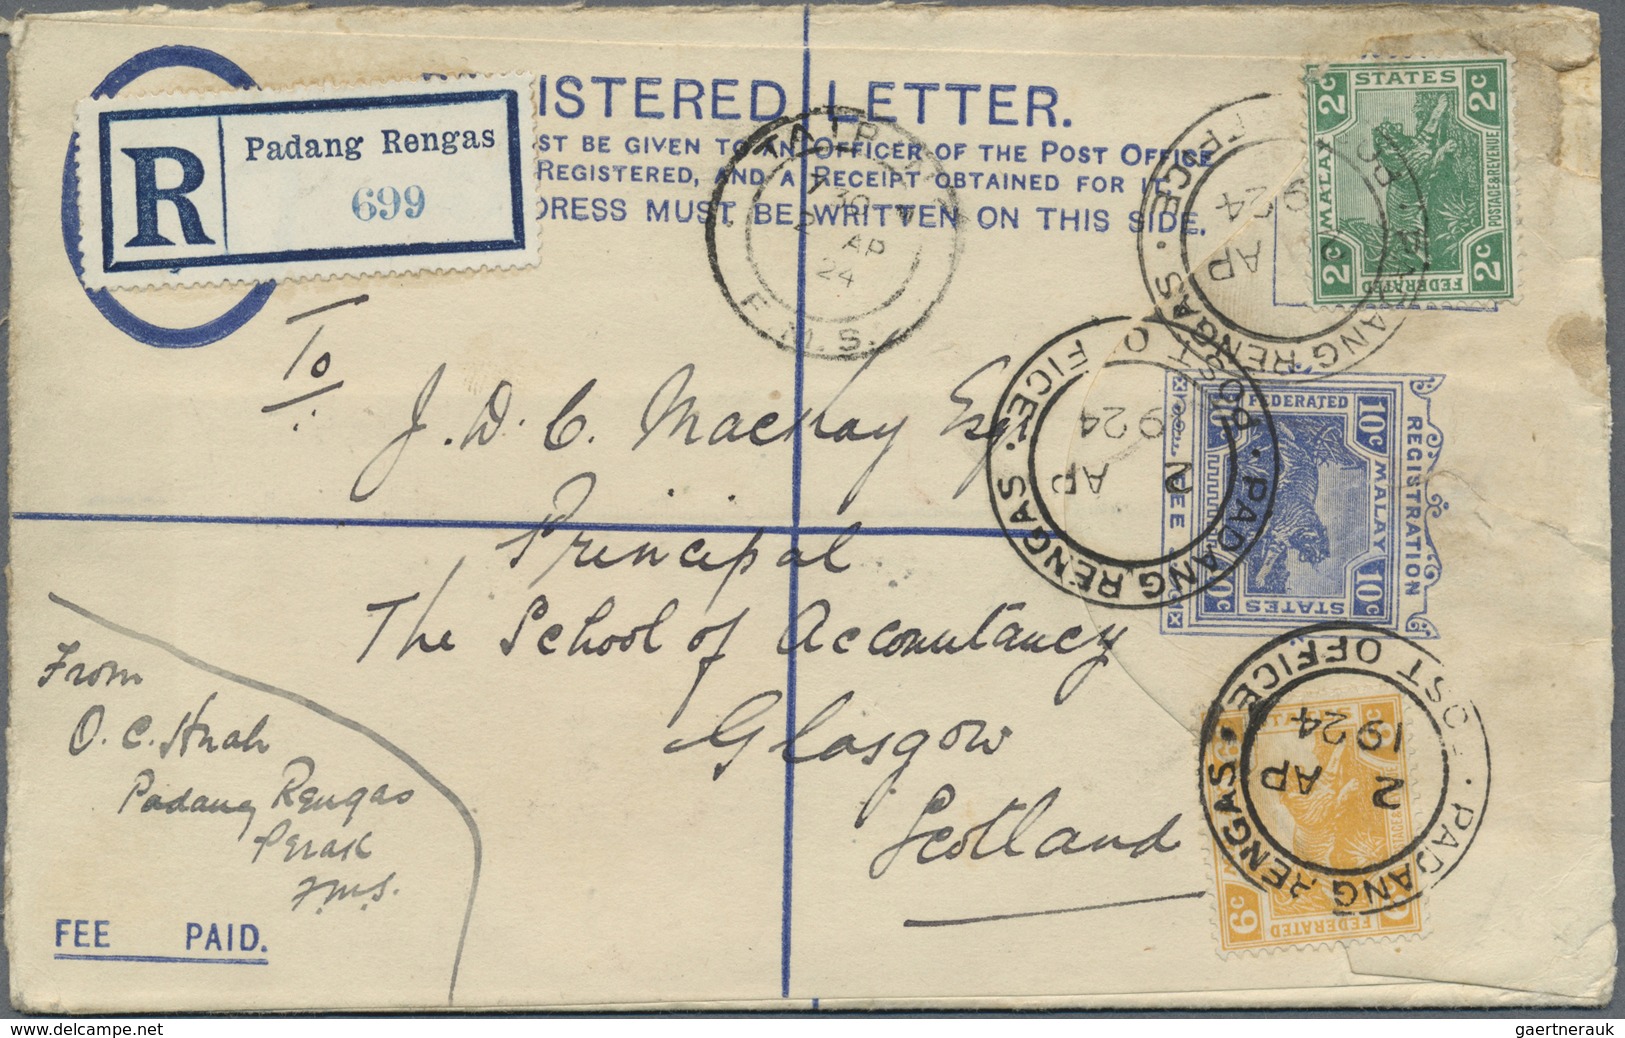 ISTERED LETTER.
ST BE GIVEN TO AN OFFICER OF THE POST OFFICE
REGISTERED, AND A RECEIPT OBTAINED FOR IT.
DRESS MUST BE WRITTEN ON THIS SIDE.
R
Padang Rengas
699
AP
24
F.M.S.
STATES
2c 2c
MALAY
POSTAGE & REVENUE
2c 2c
FEDERATED
PADANG RENGAS
19 24
AP
To
J. D. C. Mackay Esq.
Principal
The School of Accountancy
Glasgow
Scotland
POST OFFICE
PADANG RENGAS
2 AP
19 24
REGISTRATION
FEE
FEDERATED
MALAY
STATES
10c 10c
10c
POST OFFICE
PADANG RENGAS
2 AP
19 24
6c
FEDERATED
From
O. C. Hnah
Padang Rengas
Perak
F.M.S.
FEE PAID.
www.delcampe.net
gaertnerauk